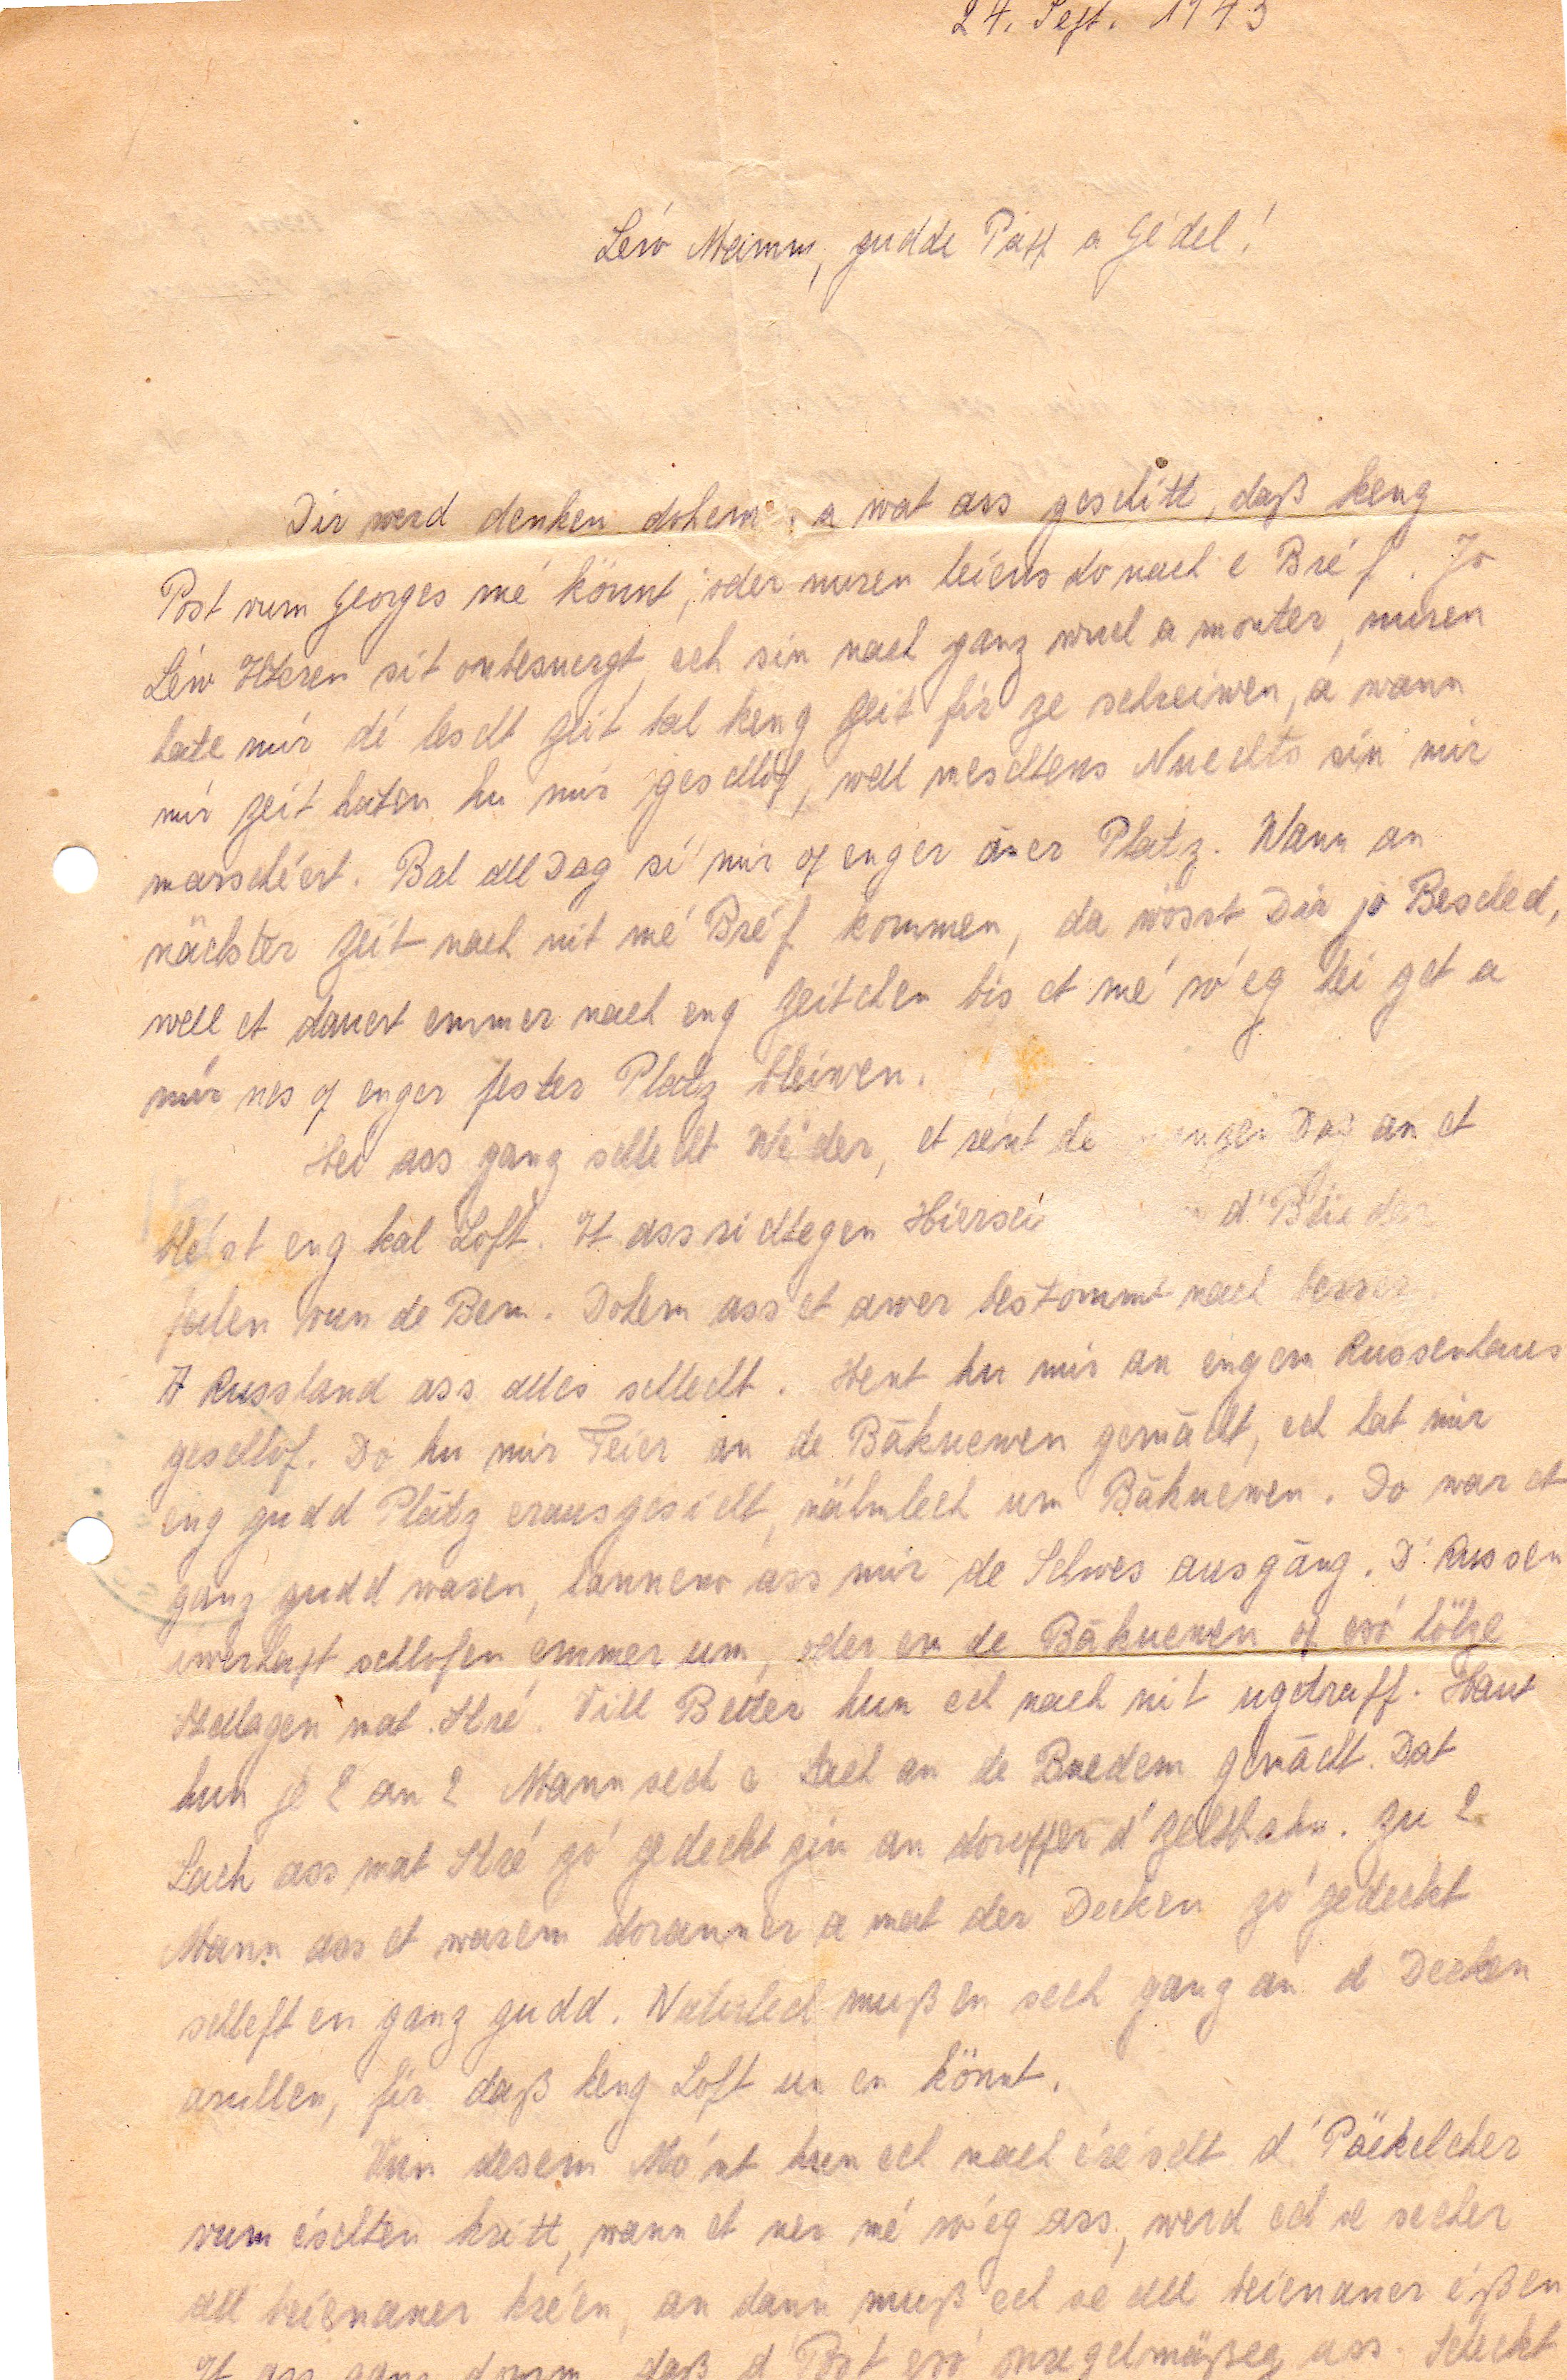 24. Sept. 1943
Léiw Mamm, gudde Papp a Gédel!
Dir werd denken dohem, a wat ass geschitt, daß keng
Post vum Georges mé könnt, oder nuren heiens do nach e Bréf. Jo
Léiw Elteren sit onbesuergt, ech sin nach ganz wuel a monter, nuren
hate mir dé lescht Zeit bal keng Zeit fir ze schreiwen, a wann
mir Zeit haten hu mir geschlof, well meschtens Nuechts sin mir
marschéert. Bal all Dag si mir of enger aner Platz. Wann an
nächster Zeit nach nit mé Bréf kommen, da wösst Dir jo Besched,
well et dauert emmer nach eng Zeitchen bis et mé ró'eg hei get a
mir nes of enger fester Platz bleiwen.
Hei ass ganz schlecht Wé'der, et rent de ganzen Dag an et
blést eng kal Loft. Et ass richtegen Hierscht d'Blieder
falen vun de Bem. Dohem ass et awer bestommt nach besser.
A Russland ass alles schlecht. Hent hu mir an engem Russenhaus
geschlof. Do hu mir Feier an de Bākuewen gemācht, ech hat mir
eng gudd Plātz erausgesicht, nähmlech um Bākuewen. Do war et
ganz gudd waren, bannenó ass mir de Schwes ausgāng. D'Russen
iwerhapt schlofen emmer um, oder em de Bākuewen of esó hölze
Stellagen mat Stré. Vill Better hun ech nach nit ugetraff. Haut
hun je 2 an 2 Mann sech e Lach an de Buedem gemācht. Dat
Lach ass mat Stré zó gedeckt gin an doruffer d'Zeltbahn. Zu 2
Mann ass et warem doranner a mat der Decken zó'gedeckt
schleft en ganz gudd. Natirlech muß en sech ganz an d Decken
arullen, fir daß keng Loft un en könnt.
Vun desem Mó'nt hun ech nach éréscht d'Päckelcher
vum éschten kritt, wann et ner mé ró'eg ass, werd ech se secher
all beienaner kréen, an dann muß ech se all beienaner éßen
Et ass ganz domm, daß d'Post esó onregelmäßeg ass. Schleckt